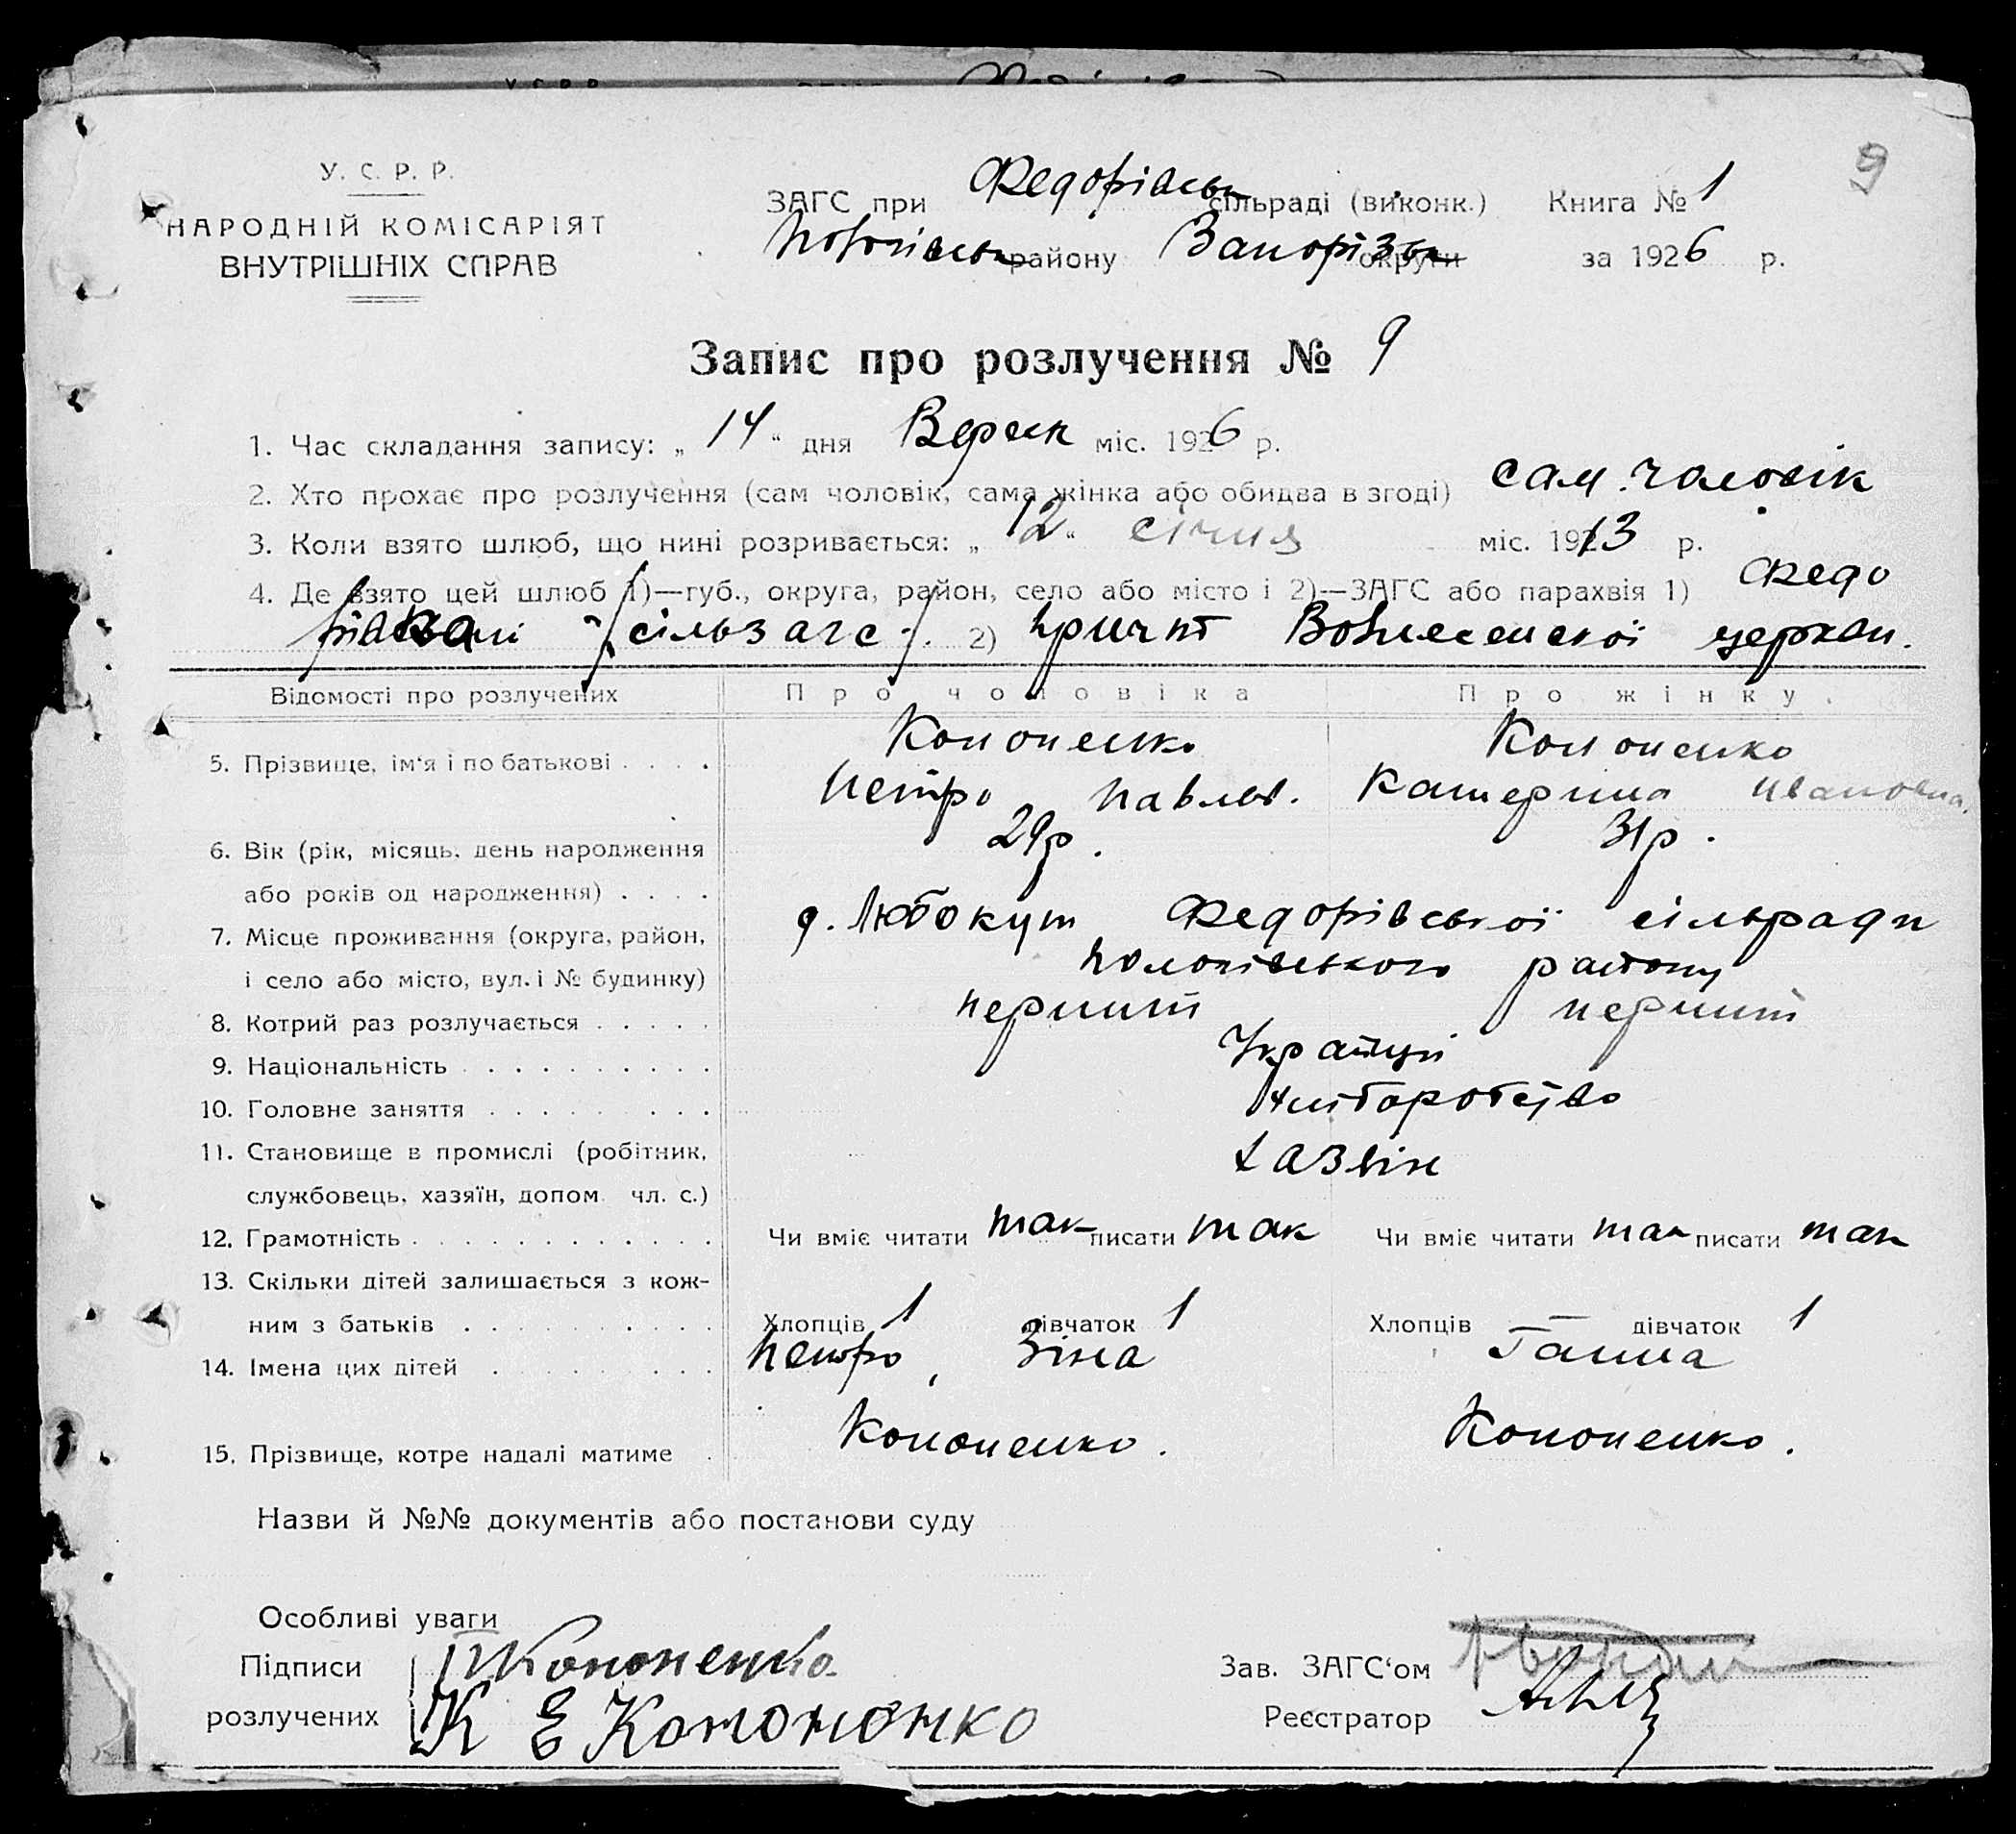 У. С. Р. Р.
НАРОДНІЙ КОМІСАРІЯТ
ВНУТРІШНІХ СПРАВ
ЗАГС при Федорівськ сільраді (виконк.) Книга № 1
району Запорізьк округи за 1926 р.
9
Запис про розлучення № 9
1. Час складання запису: „ 14 “ дня Вересн міс. 1926 р.
2. Хто прохає про розлучення (сам чоловік, сама жінка або обидва в згоді) сам чоловік
3. Коли взято шлюб, що нині розривається: „ 12 “ січня міс. 1913 р.
4. Де взято цей шлюб 1)—губ., округа, район, село або місто і 2)—ЗАГС або парахвія 1) Федо
сільзагс 2) причт Вознесенської церкви.
Відомості про розлучених Про чоловіка Про жінку.
5. Прізвище, ім'я і по батькові . . . . Кононенко Кононенко
Петро Павлов. Катерина Ивановна.
6. Вік (рік, місяць, день народження 29р. 31р.
або років од народження) . . . .
7. Місце проживання (округа, район, Федорівської сільради
і село або місто, вул. і № будинку) Пологівського району
8. Котрий раз розлучається . . . . . перший перший
9. Національність . . . . . . . . . . Українці
10. Головне заняття . . . . . . . . . хліборобство
11. Становище в промислі (робітник,
службовець, хазяїн, допом. чл. с.)
12. Грамотність . . . . . . . . . . . . Чи вміє читати так писати так Чи вміє читати так писати так
13. Скільки дітей залишається з кож-
ним з батьків . . . . . . . . . Хлопців 1 дівчаток 1 Хлопців — дівчаток 1
14. Імена цих дітей . . . . . . . . Петро, Зіна Ганна
15. Прізвище, котре надалі матиме . Кононенко. Кононенко.
Назви й №№ документів або постанови суду
Особливі уваги
Підписи Кононенко Зав. ЗАГС‘ом
розлучених К Е Конононко Реєстратор